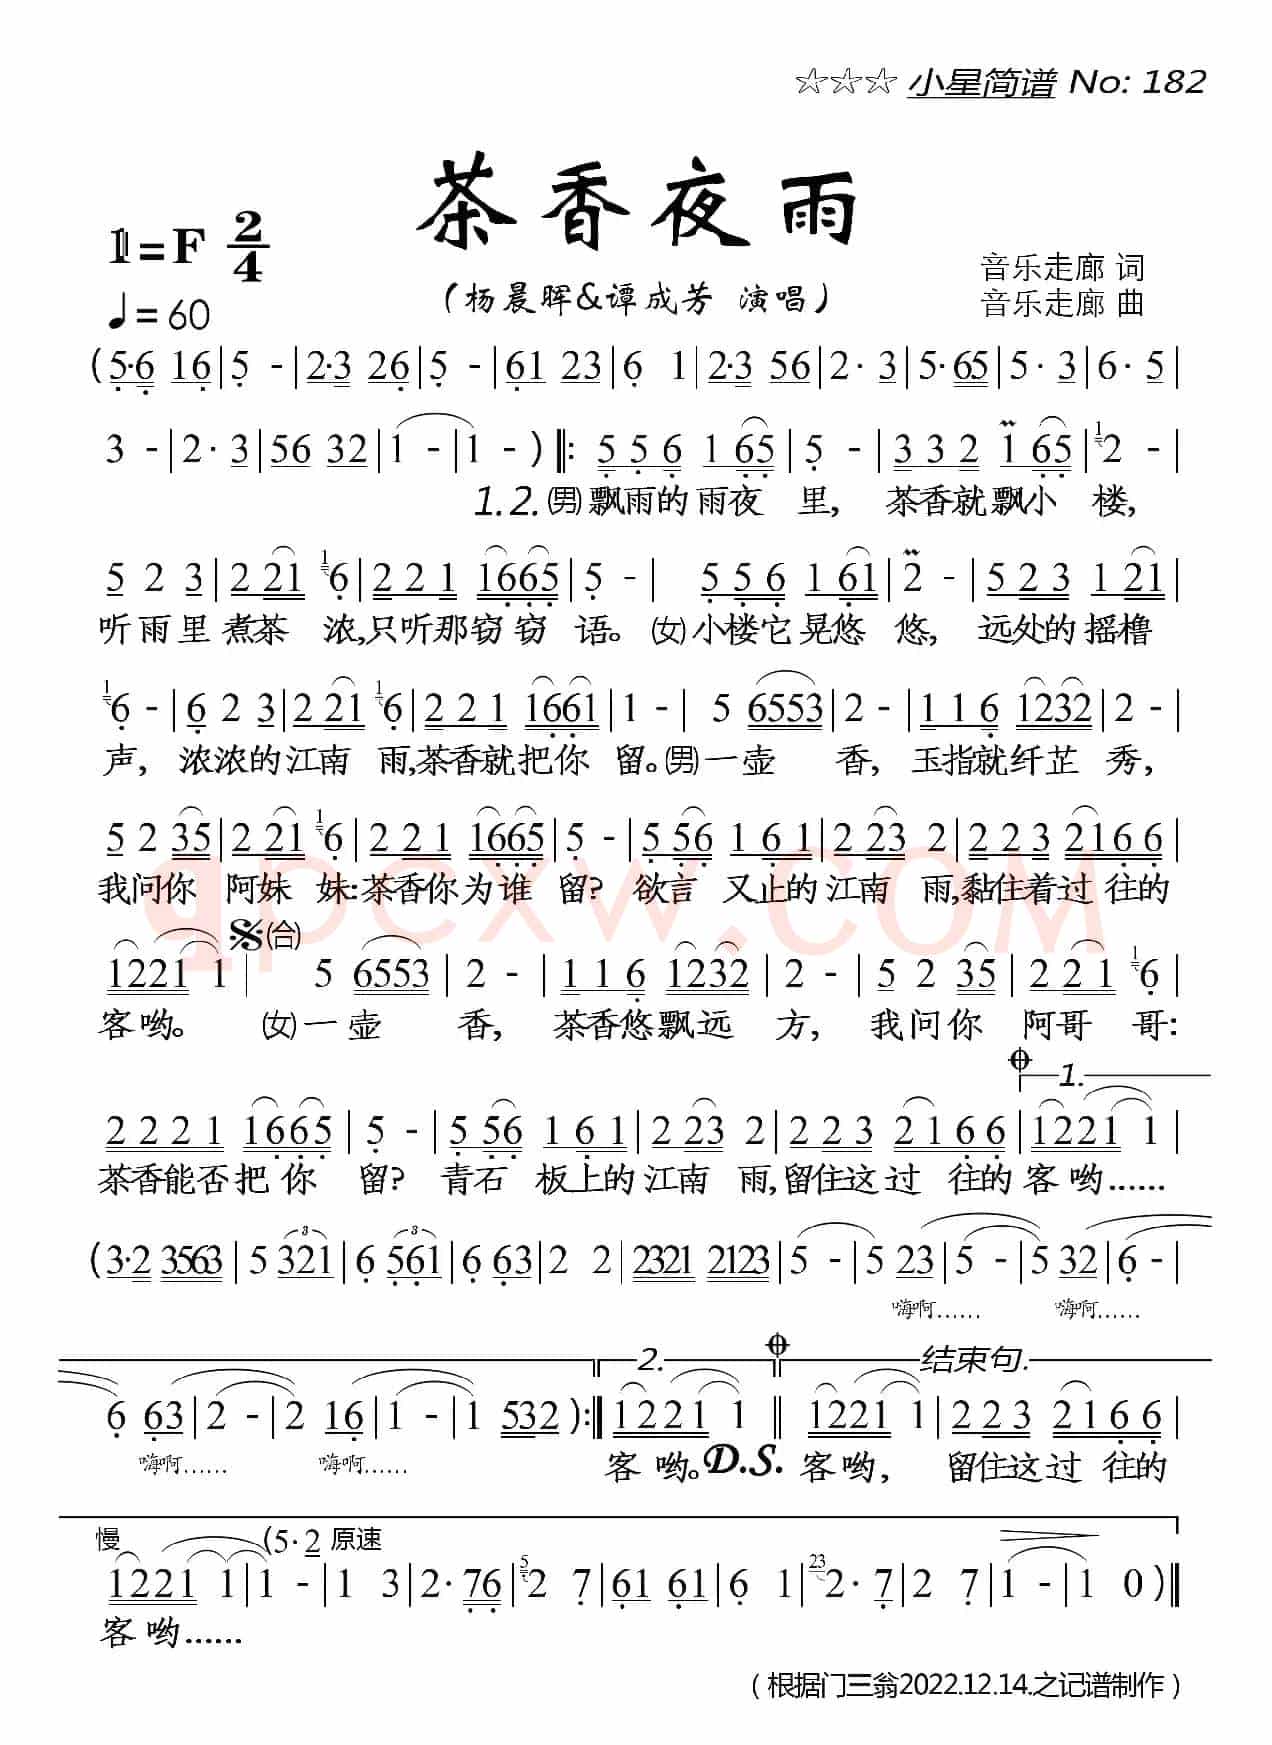 ☆☆☆ 小星简谱 No: 182
茶香夜雨
1=F 2/4
♩=60
（杨晨晖&谭成芳 演唱）
音乐走廊 词
音乐走廊 曲
(5·6 16|5 -|2·3 26|5 -|61 23|6 1|2·3 56|2· 3|5· 65|5· 3|6· 5|
3 -|2· 3|56 32|1 -|1 -)‖: 5 5 6 1 65|5 -|3 3 2 1 65|1 2 -|
1.2.(男)飘雨的雨夜 里, 茶香就飘小 楼,
5 2 3|2 21 1 6|2 2 1 1665|5 -| 5 5 6 1 61|2 -|5 2 3 1 21|
听雨里煮茶 浓,只听那窃窃 语。(女)小楼它晃悠 悠, 远处的摇橹
1 6 -|6 2 3|2 21 1 6|2 2 1 1661|1 -| 5 6553|2 -|1 1 6 1232|2 -|
声, 浓浓的江南 雨,茶香就把你 留。(男)一壶 香, 玉指就纤芷 秀,
5 2 35|2 21 1 6|2 2 1 1665|5 -|5 56 1 6 1|2 23 2|2 2 3 216 6|
我问你 阿妹 妹:茶香你为谁 留? 欲言 又止的江南 雨,黏住着过 往的
qpcxw.COM
1221 1| 𝄋(合) 5 6553|2 -|1 1 6 1232|2 -|5 2 35|2 2 1 1 6|
客呦。 (女)一壶 香, 茶香悠飘远 方, 我问你 阿哥 哥:
1.
2 2 2 1 1665|5 -|5 56 1 6 1|2 23 2|2 2 3 2 1 6 6|1221 1|
茶香能否把你 留? 青石 板上的江南 雨,留住这过 往的客 呦……
(3·2 3563|5 321|6 561|6 63|2 2|2321 2123|5 -|5 23|5 -|5 32|6 -|
嗨啊…… 嗨啊……
2. 结束句.
6 63|2 -|2 16|1 -|1 532):‖1221 1‖1221 1|2 2 3 2 1 6 6|
嗨啊…… 嗨啊…… 客 呦。D.S. 客呦, 留住这过 往的
慢 (5· 2 原速
1221 1|1 -|1 3|2· 76|5 2 7|61 61|6 1|23 2· 7|2 7|1 -|1 0)‖
客 呦……
（根据门三翁2022.12.14.之记谱制作）